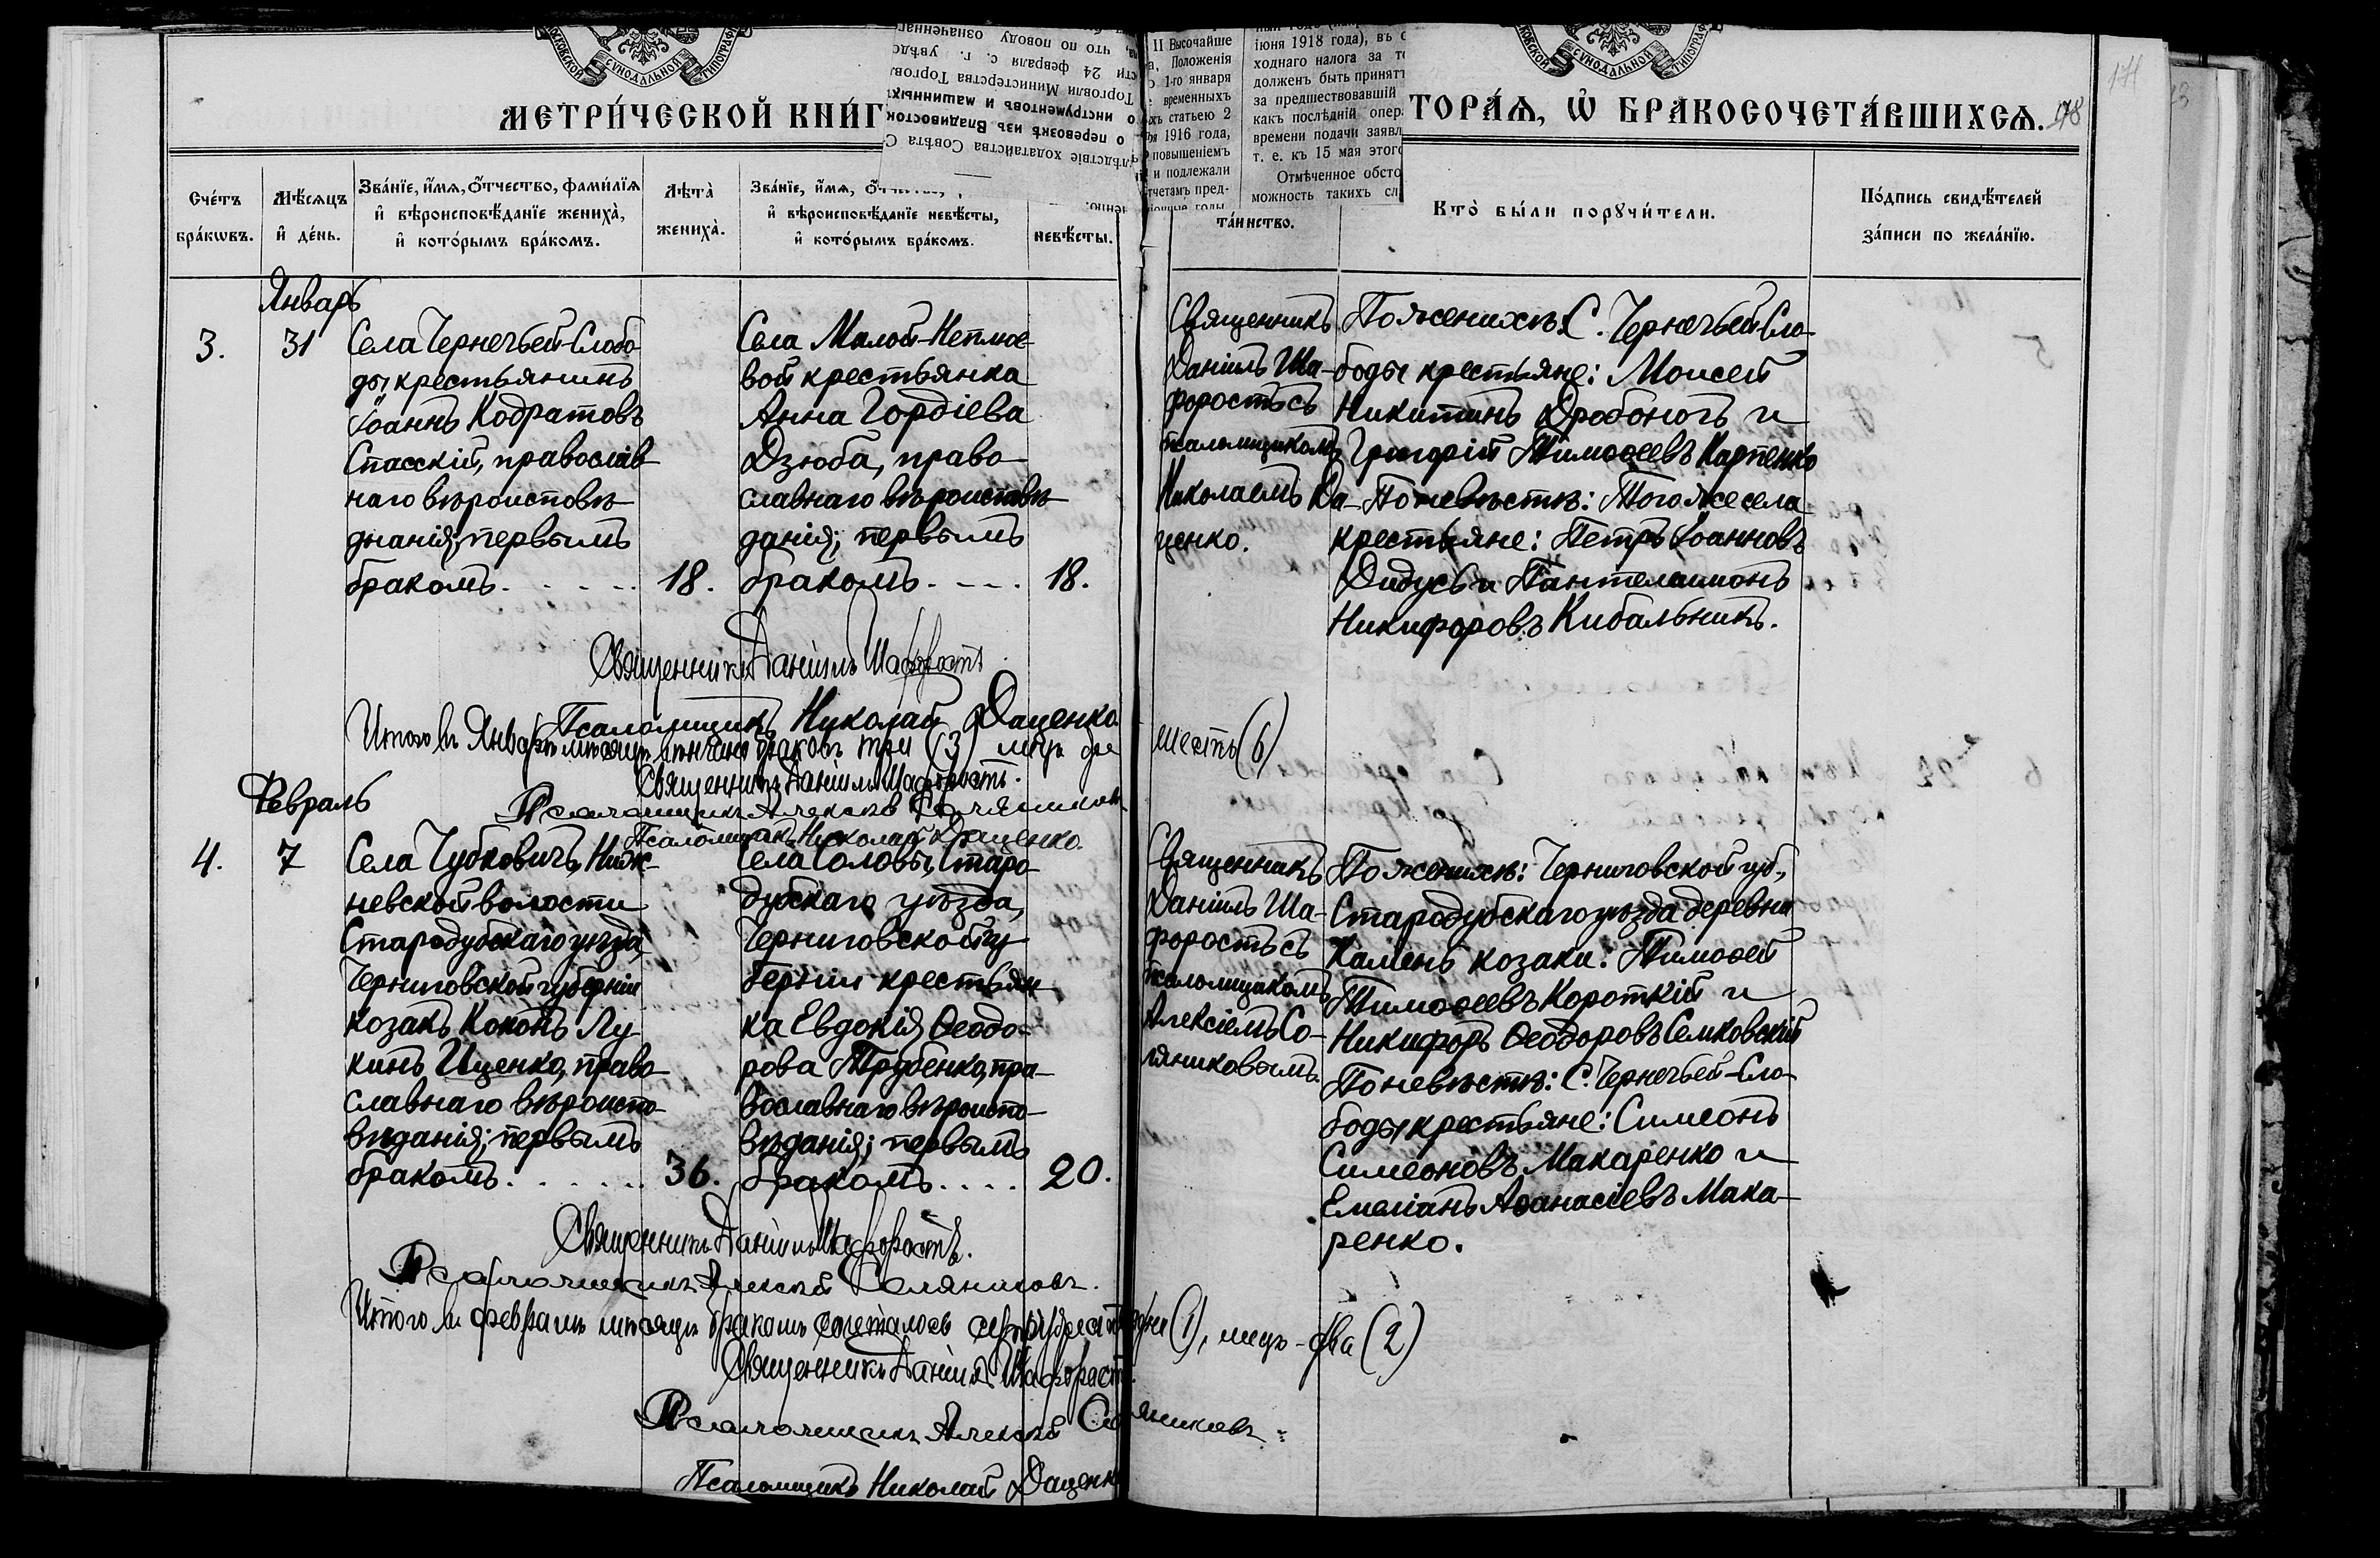 МЕТРИ́ЧЕСКОЙ КНИ́Г
ТОРА́Я, Ѡ҆ БРАКОСОЧЕТА́ВШИХСЯ.
178
171
что по поводу означеннаг
сти 24 февраля с. г. увѣдо
Торговли Министерства Торгов
о инструментовъ и машинных
о перевозкѣ изъ Владивосток
лѣдствіе ходатайства Совѣта С
II Высочайше
а, Положенія
1-го января
временныхъ
хъ статьею 2
1916 года,
повышеніемъ
и подлежали
тчетамъ пред-
іюня 1918 года), въ
ходнаго налога за
долженъ быть принятъ
за предшествовавшій
какъ послѣдній опер
времени подачи заявл
т. е. къ 15 мая этого
Отмѣченное обсто
можность такихъ сл
Сче́тъ
бра́кѡвъ.
Мѣ́сяцъ
и҆ де́нь.
Зва́нїе, и҆́мя, ѻ҆́тчество, фами́лїя
и҆ вѣроисповѣ́данїе жениха̀,
и҆ кото́рымъ бра́комъ.
Лѣта̀
жениха̀.
Зва́нїе, и҆́мя,
и҆ вѣроисповѣ́данїе невѣ́сты,
и҆ кото́рымъ бра́комъ.
невѣ́сты.
та́инство.
Кто̀ бы́ли порꙋчи́тели.
По́дпись свидѣ́телей
за́писи по жела́нїю.
Январь
3.
31
Села Чернечьей-Слобо-
ды крестьянинъ
Іоаннъ Кодратовъ
Спасскій, православ-
наго вѣроисповѣ-
днанія; первымъ
бракомъ.
18.
Села Малой-Неплюе-
вой крестьянка
Анна Гордіева
Дзюба, право-
славнаго вѣроисповѣ-
данія; первымъ
бракомъ.
18.
Священникъ
Даніилъ Ша-
форостъ съ
псаломщикомъ
Николаемъ Да-
ценко.
По женихѣ: С. Чернечьей-Сло-
боды крестьяне: Моисей
Никитинъ Дробоногъ и
Григорій Тимоѳеевъ Карпенко
По невѣстѣ: Того же села
крестьяне: Петръ Іоанновъ
Дидусь и Пантелаимонъ
Никифоровъ Кибальникъ.
Священникъ Даніилъ Шафоростъ
Псаломщикъ Николай Даценко
Итого въ Январѣ мѣсяцѣ браковъ три (3)
шесть (6)
Священникъ Даніилъ Шафоростъ.
Псаломщикъ Алексѣй Соляниковъ
Псаломщикъ Николай Даценко.
Февраль
4.
7
Села Чубковичъ, Ниж-
невской волости
Стародубскаго уѣзда,
Черниговской губерніи
козакъ Кононъ Лу-
кинъ Иценко, право-
славнаго вѣроиспо-
вѣданія; первымъ
бракомъ.
36.
Села Соловы, Старо-
дубскаго уѣзда,
Черниговской гу-
берніи крестьян-
ка Евдокія Ѳеодо-
рова Трубенко, пра-
вославнаго вѣроиспо-
вѣданія; первымъ
бракомъ.
20.
Священникъ
Даніилъ Ша-
форостъ съ
псаломщикомъ
Алексіемъ Со-
ляниковымъ.
По женихѣ: Черниговской губ.,
Стародубскаго уѣзда деревни
Камень козаки: Тимоѳей
Тимоѳеевъ Короткій и
Никифоръ Ѳеодоровъ Семковскій
По невѣстѣ: С. Чернечьей-Сло-
боды крестьяне: Симеонъ
Симеоновъ Макаренко и
Емеліанъ Аѳанасіевъ Мака-
ренко.
Священникъ Даніилъ Шафоростъ.
Псаломщикъ Алексѣй Соляниковъ.
Итого въ февралѣ мѣсяцѣ бракомъ сочеталось (1), лицъ - два (2)
Священникъ Даніилъ Шафоростъ.
Псаломщикъ Алексѣй Соляниковъ
Псаломщикъ Николай Даценко